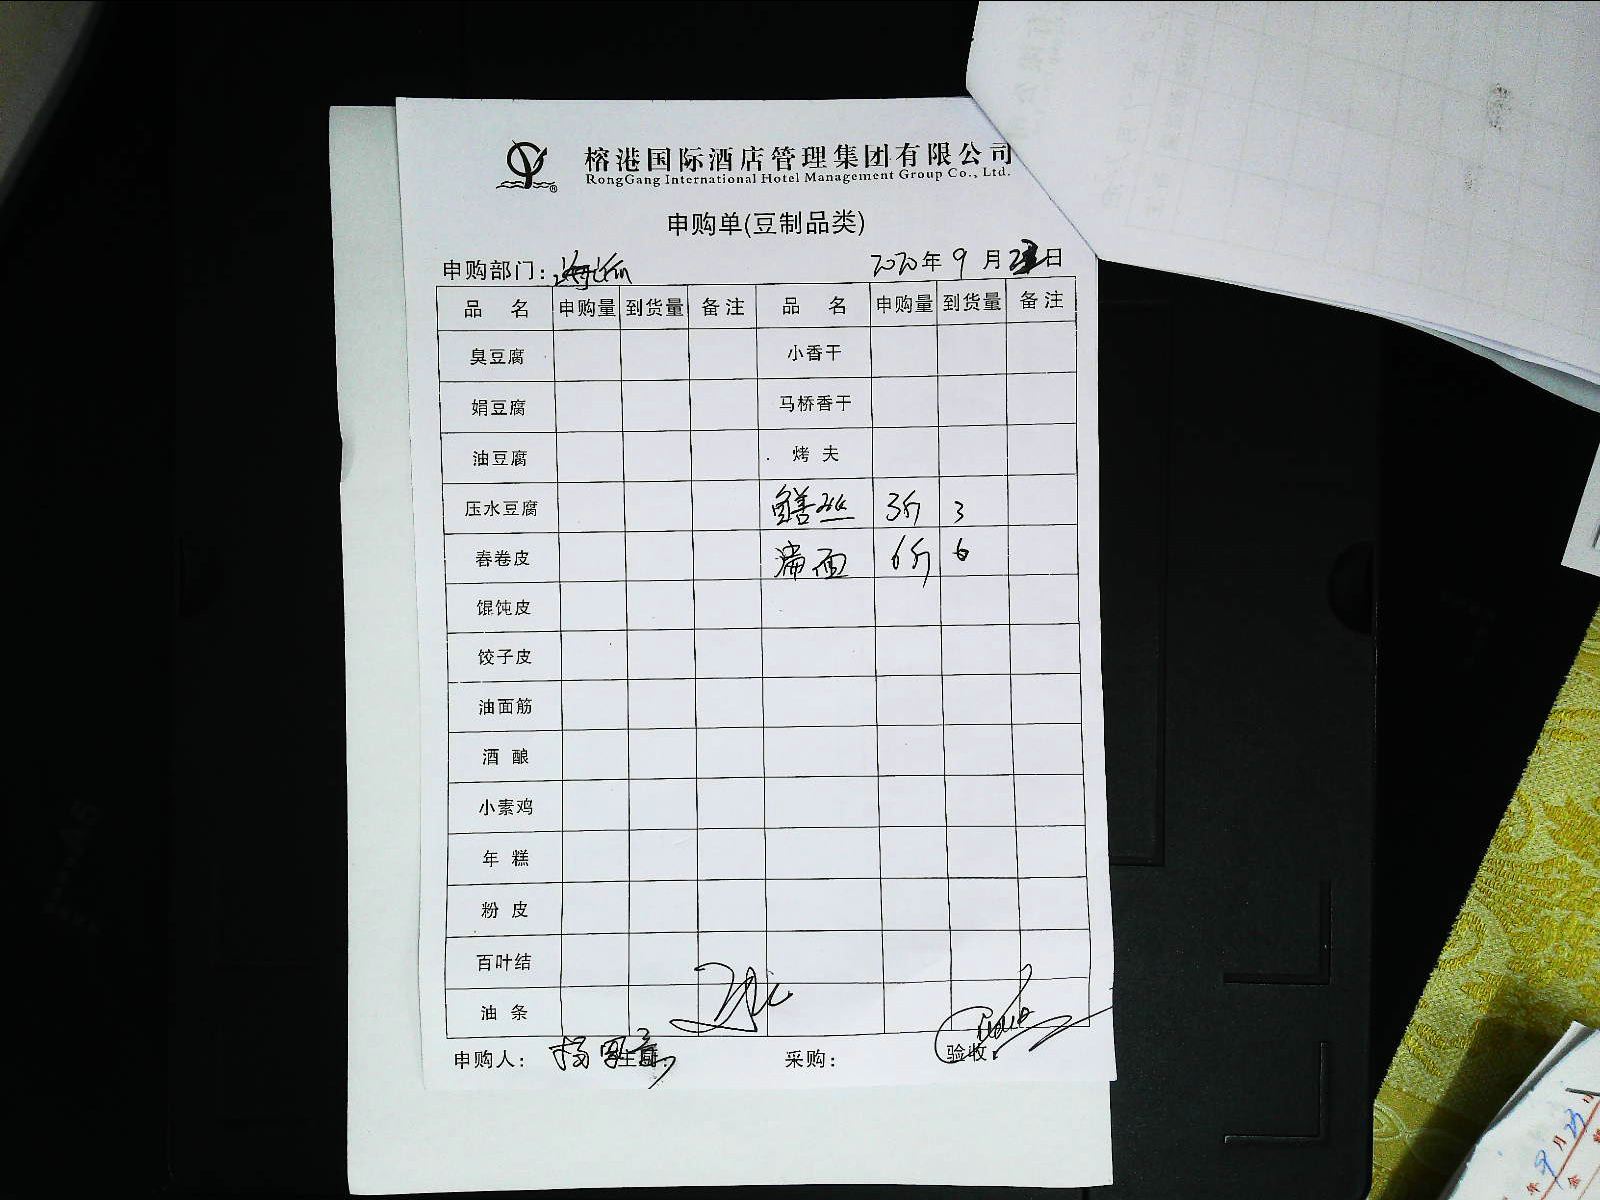 榕港国际酒店管理集团有限公司
RongGang International Hotel Management Group Co., Ltd.
申购单(豆制品类)
申购部门：海派 2020年9月 日
品 名 申购量 到货量 备注 品 名 申购量 到货量 备注
臭豆腐 小香干
娟豆腐 马桥香干
油豆腐 烤夫
压水豆腐 鳝丝 3斤 3
春卷皮 面 6斤 6
馄饨皮
饺子皮
油面筋
酒酿
小素鸡
年糕
粉皮
百叶结
油条
申购人： 杨 主厨： 采购： 验收：